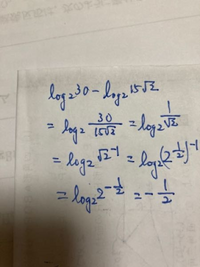 log₂30 − log₂15√2
= log₂ 30/(15√2) = log₂ 1/√2
= log₂ √2⁻¹ = log₂(2^(1/2))⁻¹
= log₂ 2^(−1/2) = −1/2